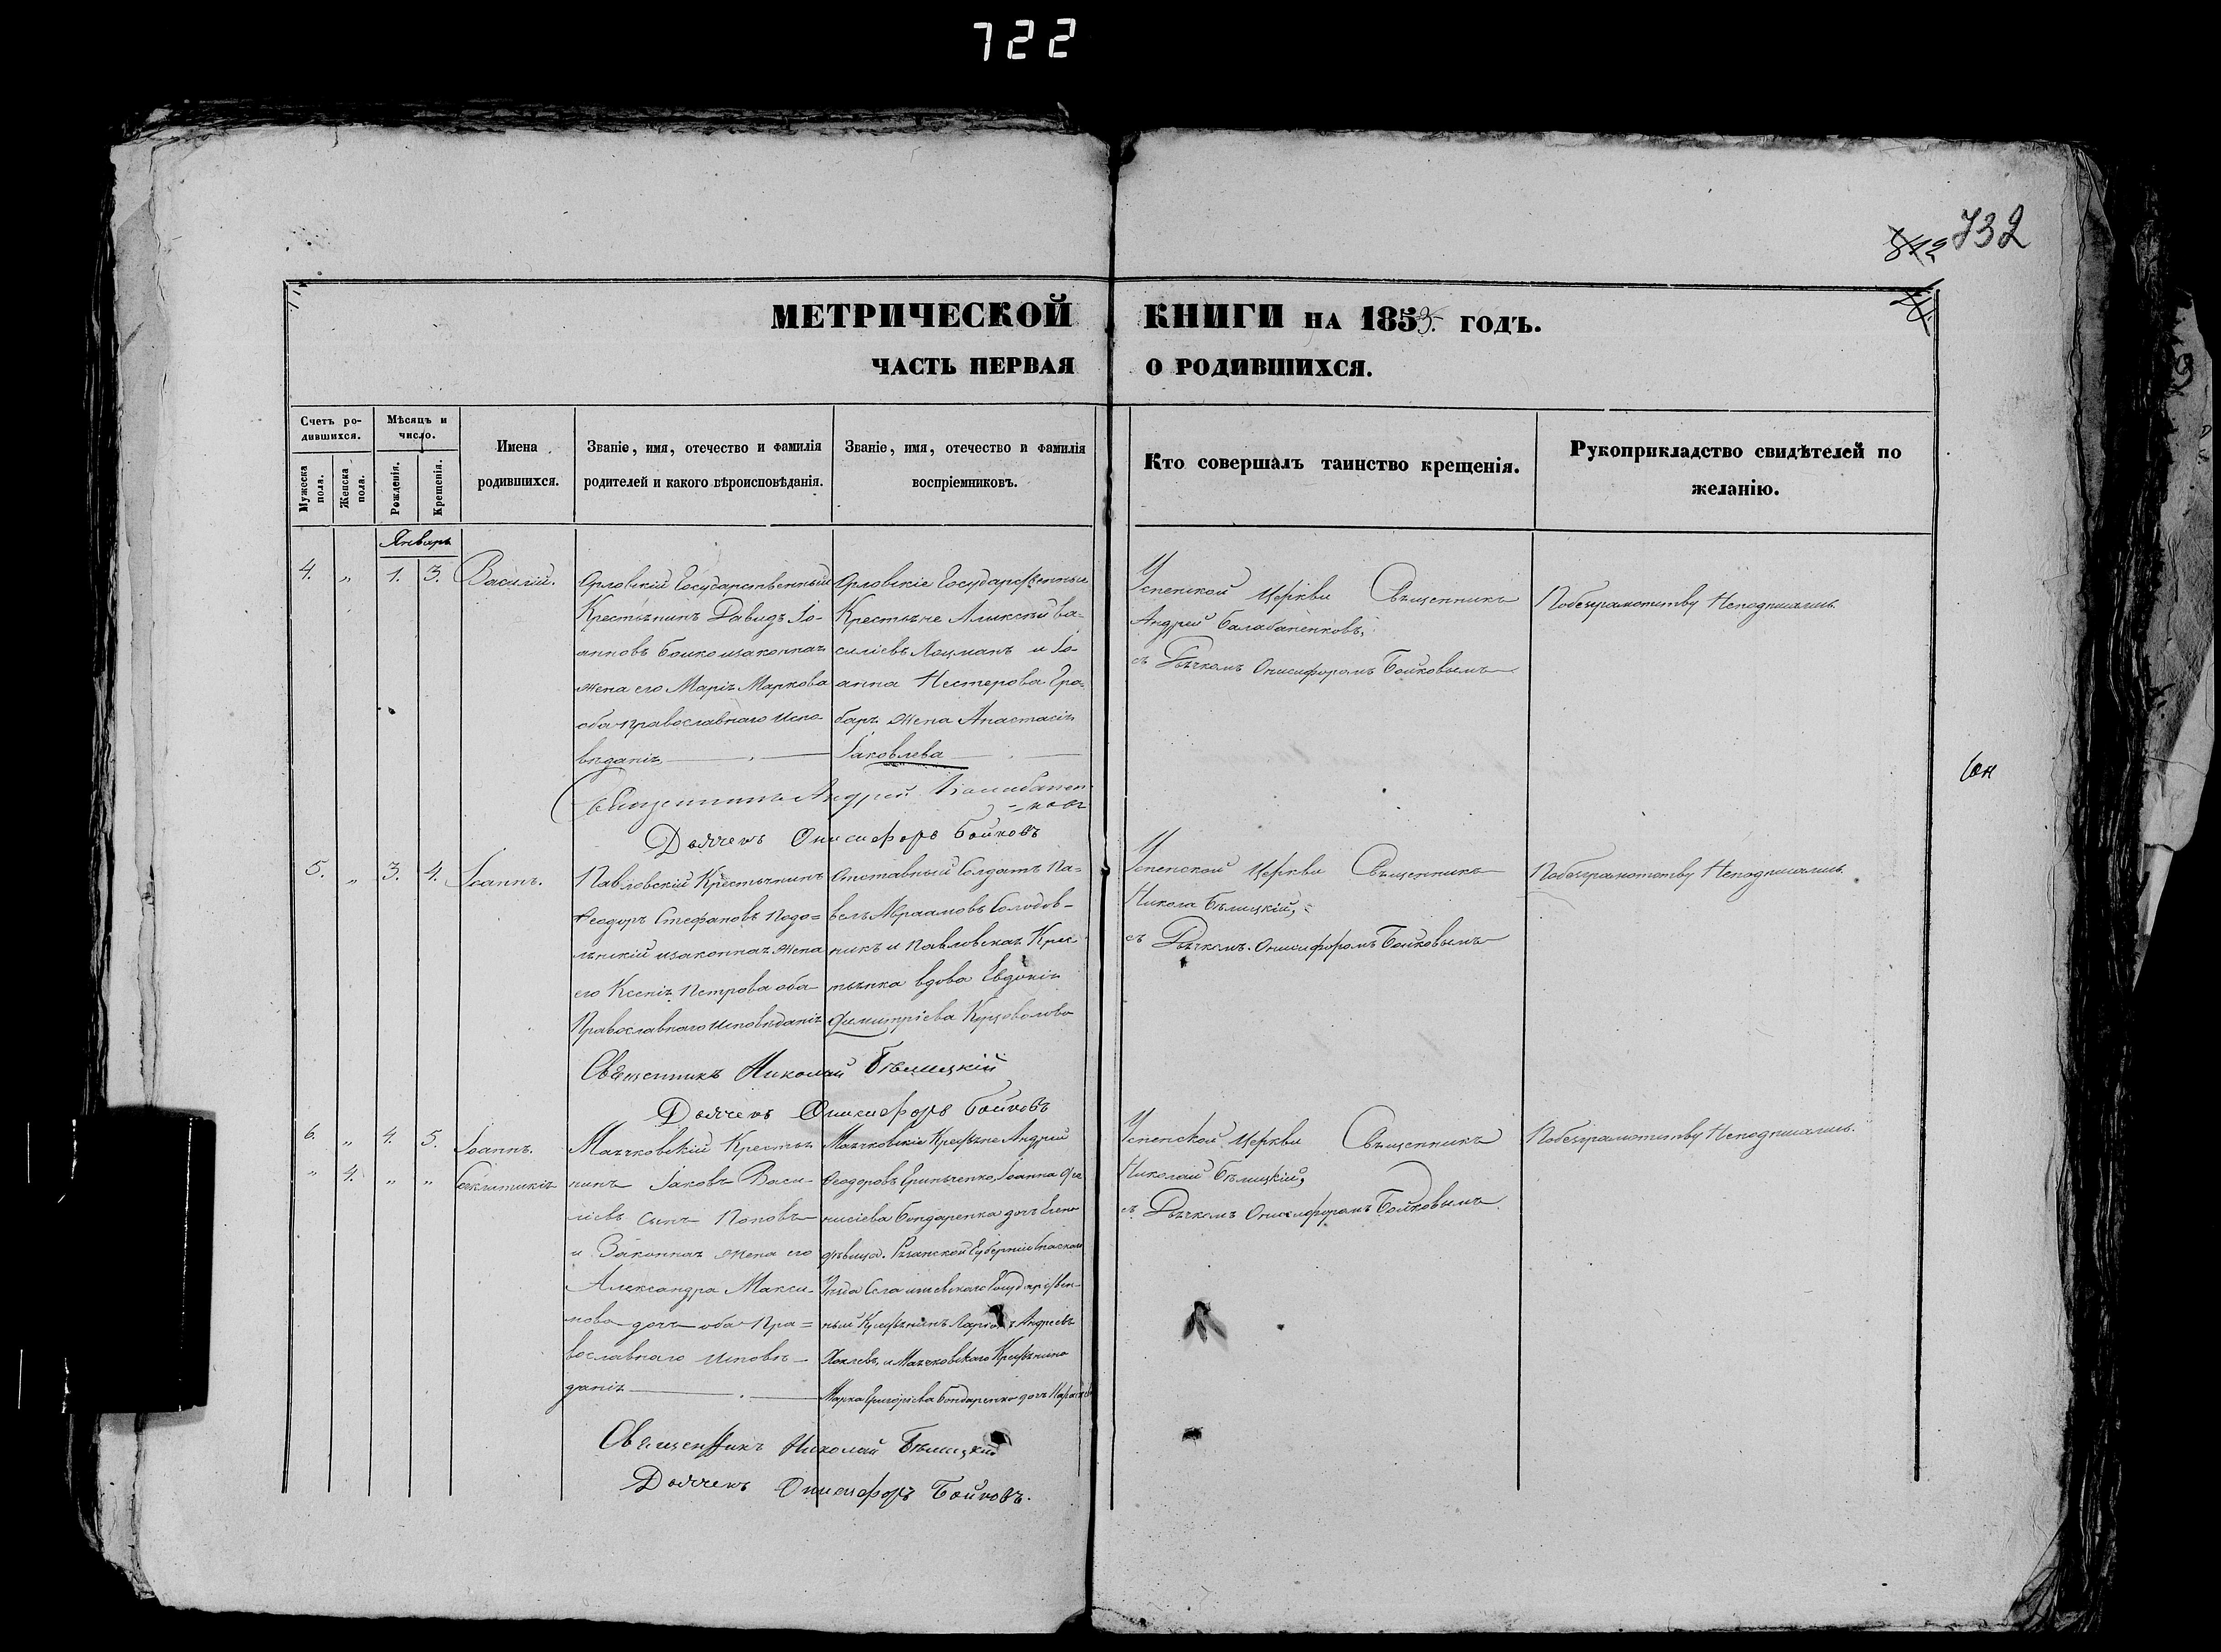 722
732
812
МЕТРИЧЕСКОЙ КНИГИ НА 1853 ГОДЪ.
ЧАСТЬ ПЕРВАЯ О РОДИВШИХСЯ.
Счетъ родившихся.
Мужеска пола.
Женска пола.
Мѣсяцъ и число.
Рожденія.
Крещенія.
Имена родившихся.
Званіе, имя, отечество и фамилія родителей и какого вѣроисповѣданія.
Званіе, имя, отечество и фамилія воспріемниковъ.
Кто совершалъ таинство крещенія.
Рукоприкладство свидѣтелей по желанію.
Январь
4. „ 1. 3. Василій.
Орловскій Государственный
Крестьянинъ Давидъ Іо-
анновъ Бойко изаконная
жена его Марія Маркова
оба православнаго испо-
вѣданія
Орловскіе Государственные
Крестьяне Алексѣй Ва-
силіевъ Лоцманъ и Іо-
анна Нестерова Гро-
баръ жена Анастасія
Іаковлева
Успенской Церкви Священникъ
Андрей Балабаненковъ,
съ Дьячкомъ Онисифоромъ Бойковымъ
Побезграмотству Неподписались.
Священникъ Андрей Балабанен
=ковъ
Дьячекъ Онисифоръ Бойковъ
5. „ 3. 4. Іоаннъ.
Павловскій Крестьянинъ
Феодоръ Стефановъ Подо=
льскій изаконная жена
его Ксенія Петрова оба
Православнаго исповѣданія
Отставный Солдатъ Па=
велъ Авраамовъ Солодов-
никъ и Павловская Крес
тьянка вдова Евдокія
Димитріева
Успенской Церкви Священникъ
Никола Бѣлицкій,
съ Дьячкомъ Онисифоромъ Бойковымъ
Побезграмотству Неподписались.
Священникъ Николай Бѣлицкій
Дьячекъ Онисифоръ Бойковъ
6. „ 4. 5. Іоаннъ.
„ 4. „ „ Синклитикія
Маячковскій Крестья
нинъ Іаковъ Васи-
ліевъ сынъ Поповъ
и Законная жена его
Александра Макси-
мова дочь оба Пра=
вославнаго исповѣ-
данія
Маячковскіе Крестьяне Андрей
Феодоровъ Гринченко, Іоанна Діо
нисіева Бондаренка дочь Елена
дѣвица. Рязанской Губерніи Спаскаго
Уѣзда Села Государствен-
ный Крестьянинъ Ларіонъ Андреевъ
и Маячковскаго Крестьянина
Марка Григоріева Бондаренко дочь
Успенской Церкви Священникъ
Николай Бѣлицкій,
съ Дьячкомъ Онисифоромъ Бойковымъ.
Побезграмотству Неподписались.
Священникъ Николай Бѣлицкій
Дьячекъ Онисифоръ Бойковъ.